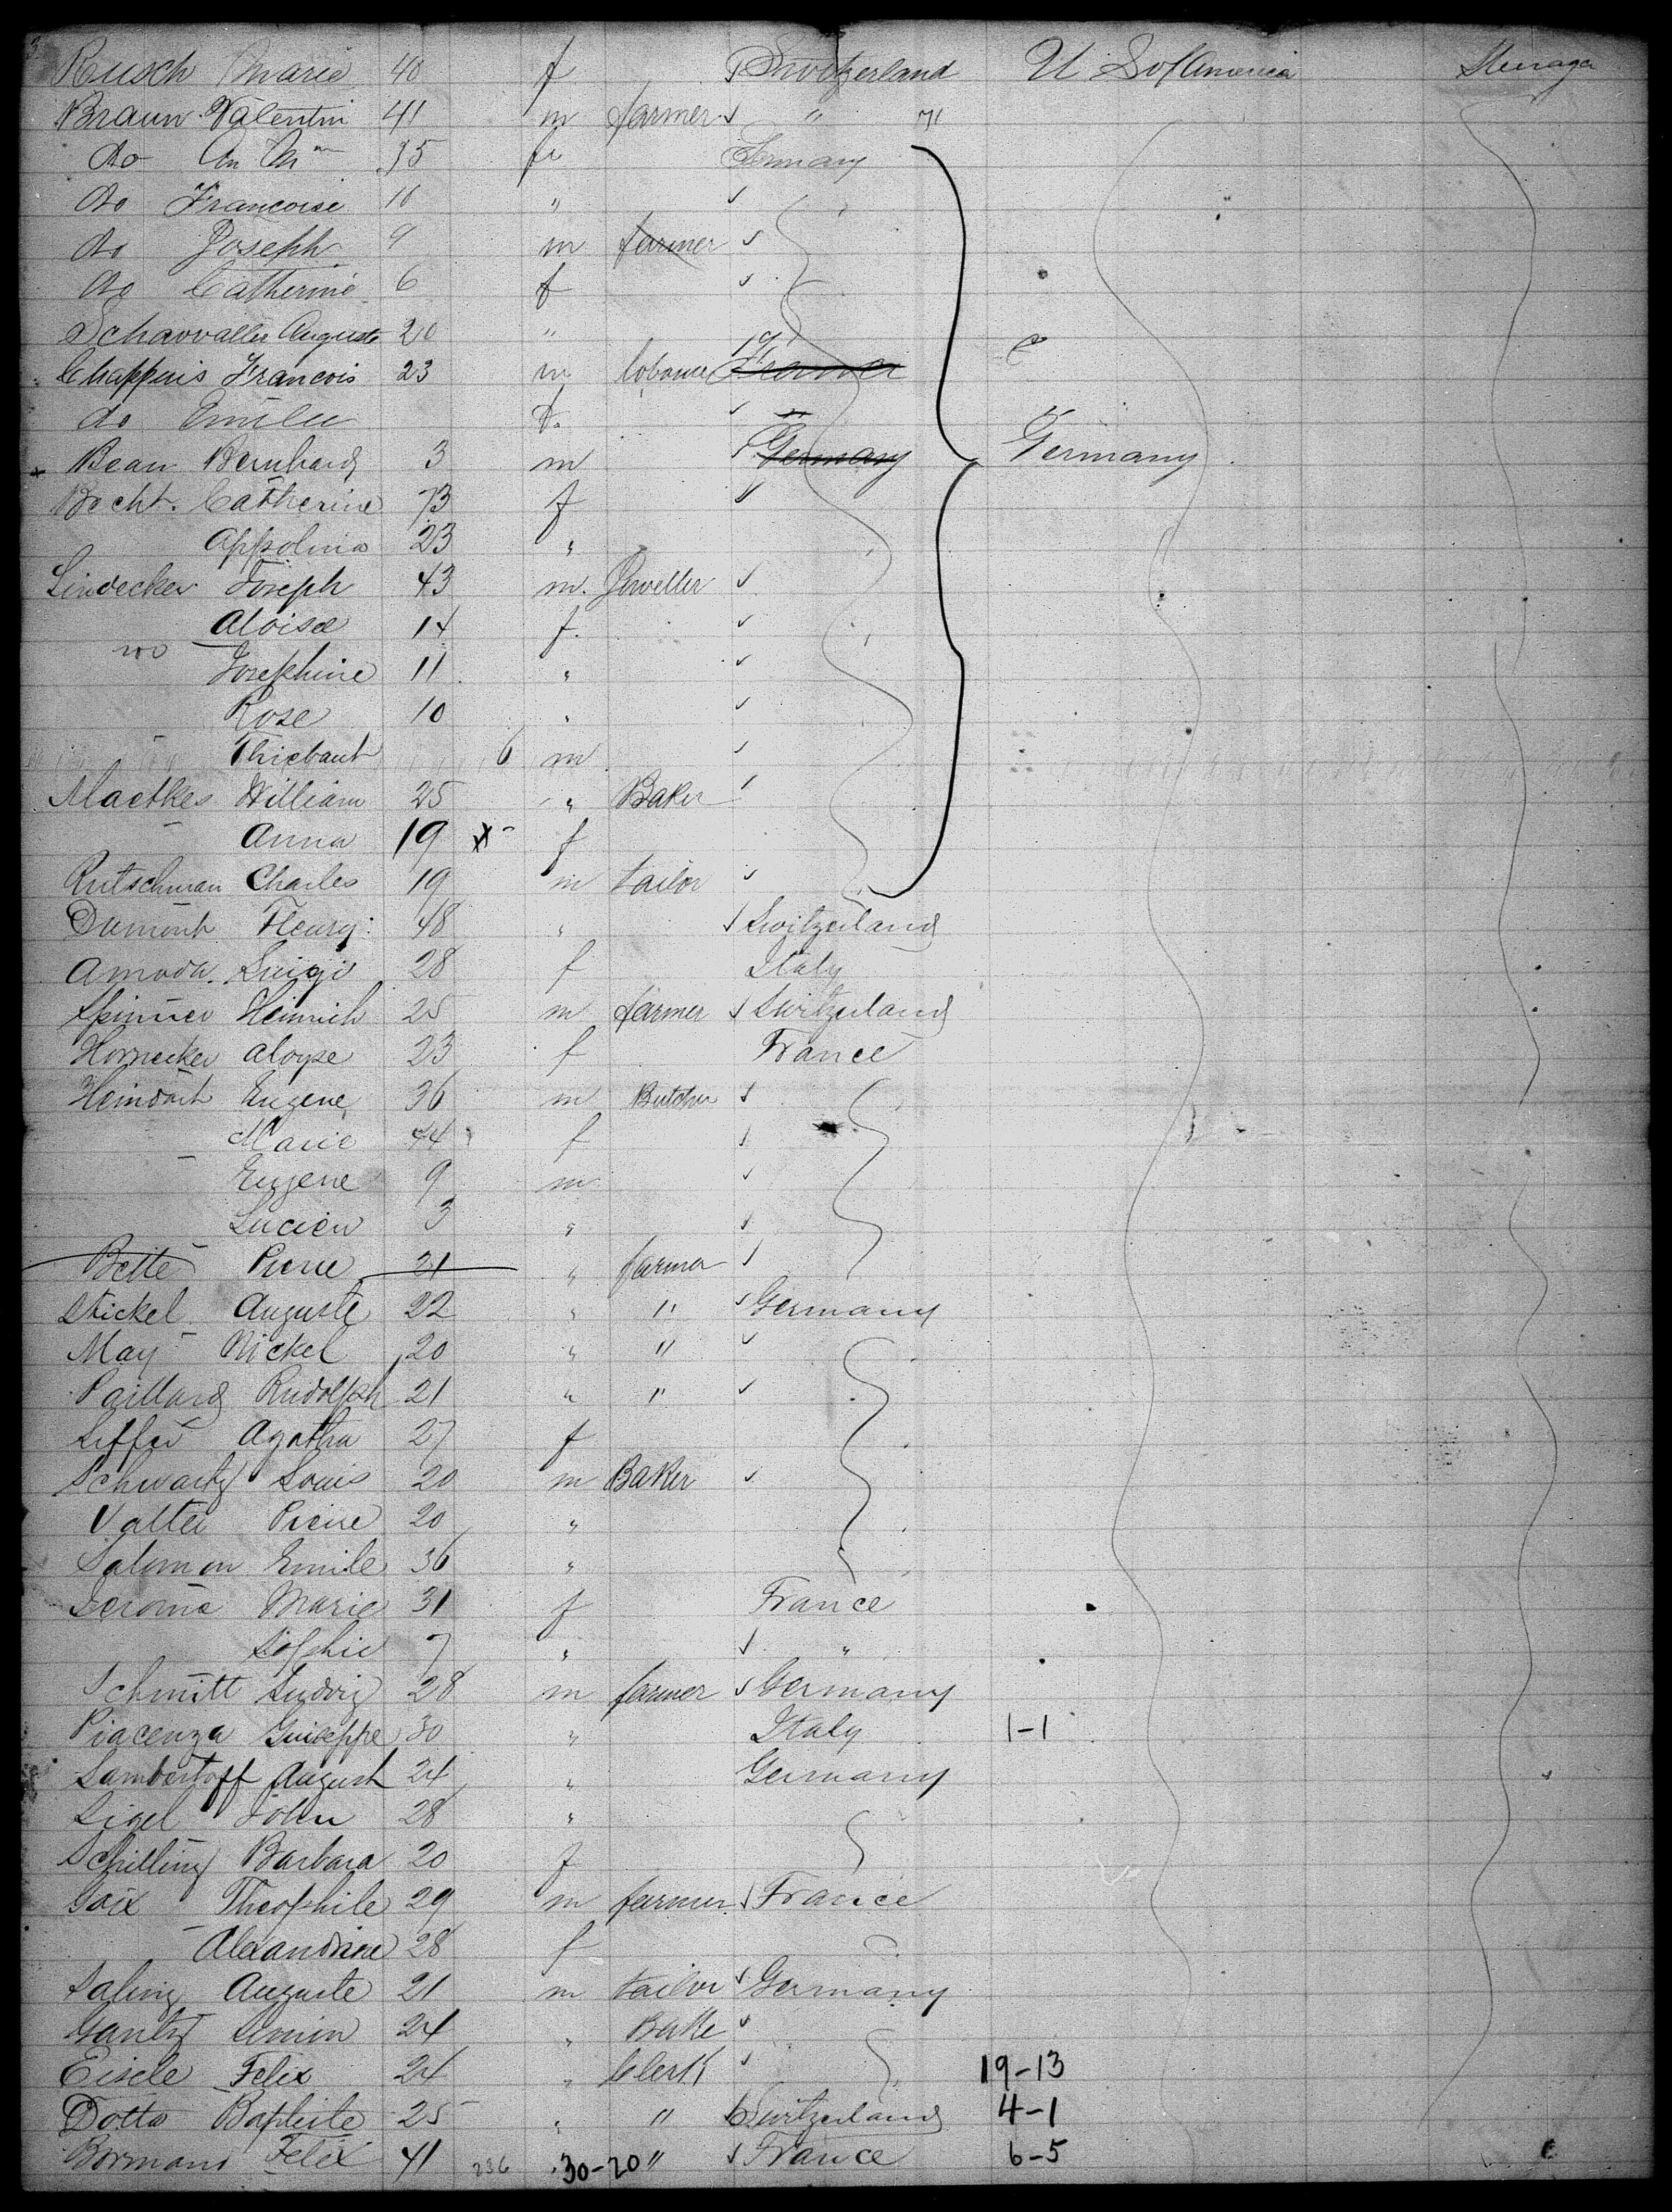 Rusch Marie 40 f Switzerland U S of America Steerage
Braun Valentin 41 m farmer " 71
do 35 fe Germany
do Francoise 10 "
do Joseph 9 m farmer
do Catherine 6 f
Auguste 20 "
Chappuis Francois 23 m
do Emilie f.
Bean Bernhard 3 m Germany Germany
Becht. Catherine 73 f
Appolina 23 "
Lindecker Joseph 43 m. Jeweller
Aloise 14 f.
Josephine 11 "
Rose 10 "
Thiebaut 6 m
William 25 " Baker
Anna 19 x - f
Rutschman Charles 19 m tailor
Dumont Fleury 48 " Switzerland
Amoda. Luigi 28 f Italy
Spinner Heinrich 25 m farmer Switzerland
Hornecker Aloyse 23 f France
Eugene 36 m Butcher
Marie 44 f
Eugene 9 m
Lucien 3 "
Bette Pierre 21 " farmer
Stickel Auguste 22 " " Germany
May Nickel 20 " "
Paillard Rudolph 21 " "
Agatha 27 f
Schwartz Louis 20 m Baker
Valter Pierre 20 "
Salomon Emile 36 "
Jerome Marie 31 f France
Sophie 7 " "
Schmitt Ludwig 28 m farmer Germany
Piacenza Guiseppe 30 " Italy 1-1
August 24 " Germany
Sigel John 28 "
Schilling Barbara 20 f
Theophile 29 m farmer France
Alexandrine 28 f
Saling Auguste 21 m tailor Germany
24 "
Eisele Felix 24 " Clerk 19-13
Dotta Baptiste 25 " " Switzerland 4-1
Bormand Felix 41 236 30-20 " France 6-5